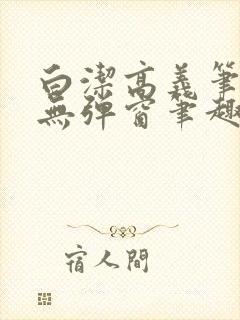 白潔高義筆
無彈窗筆趣
宿人間